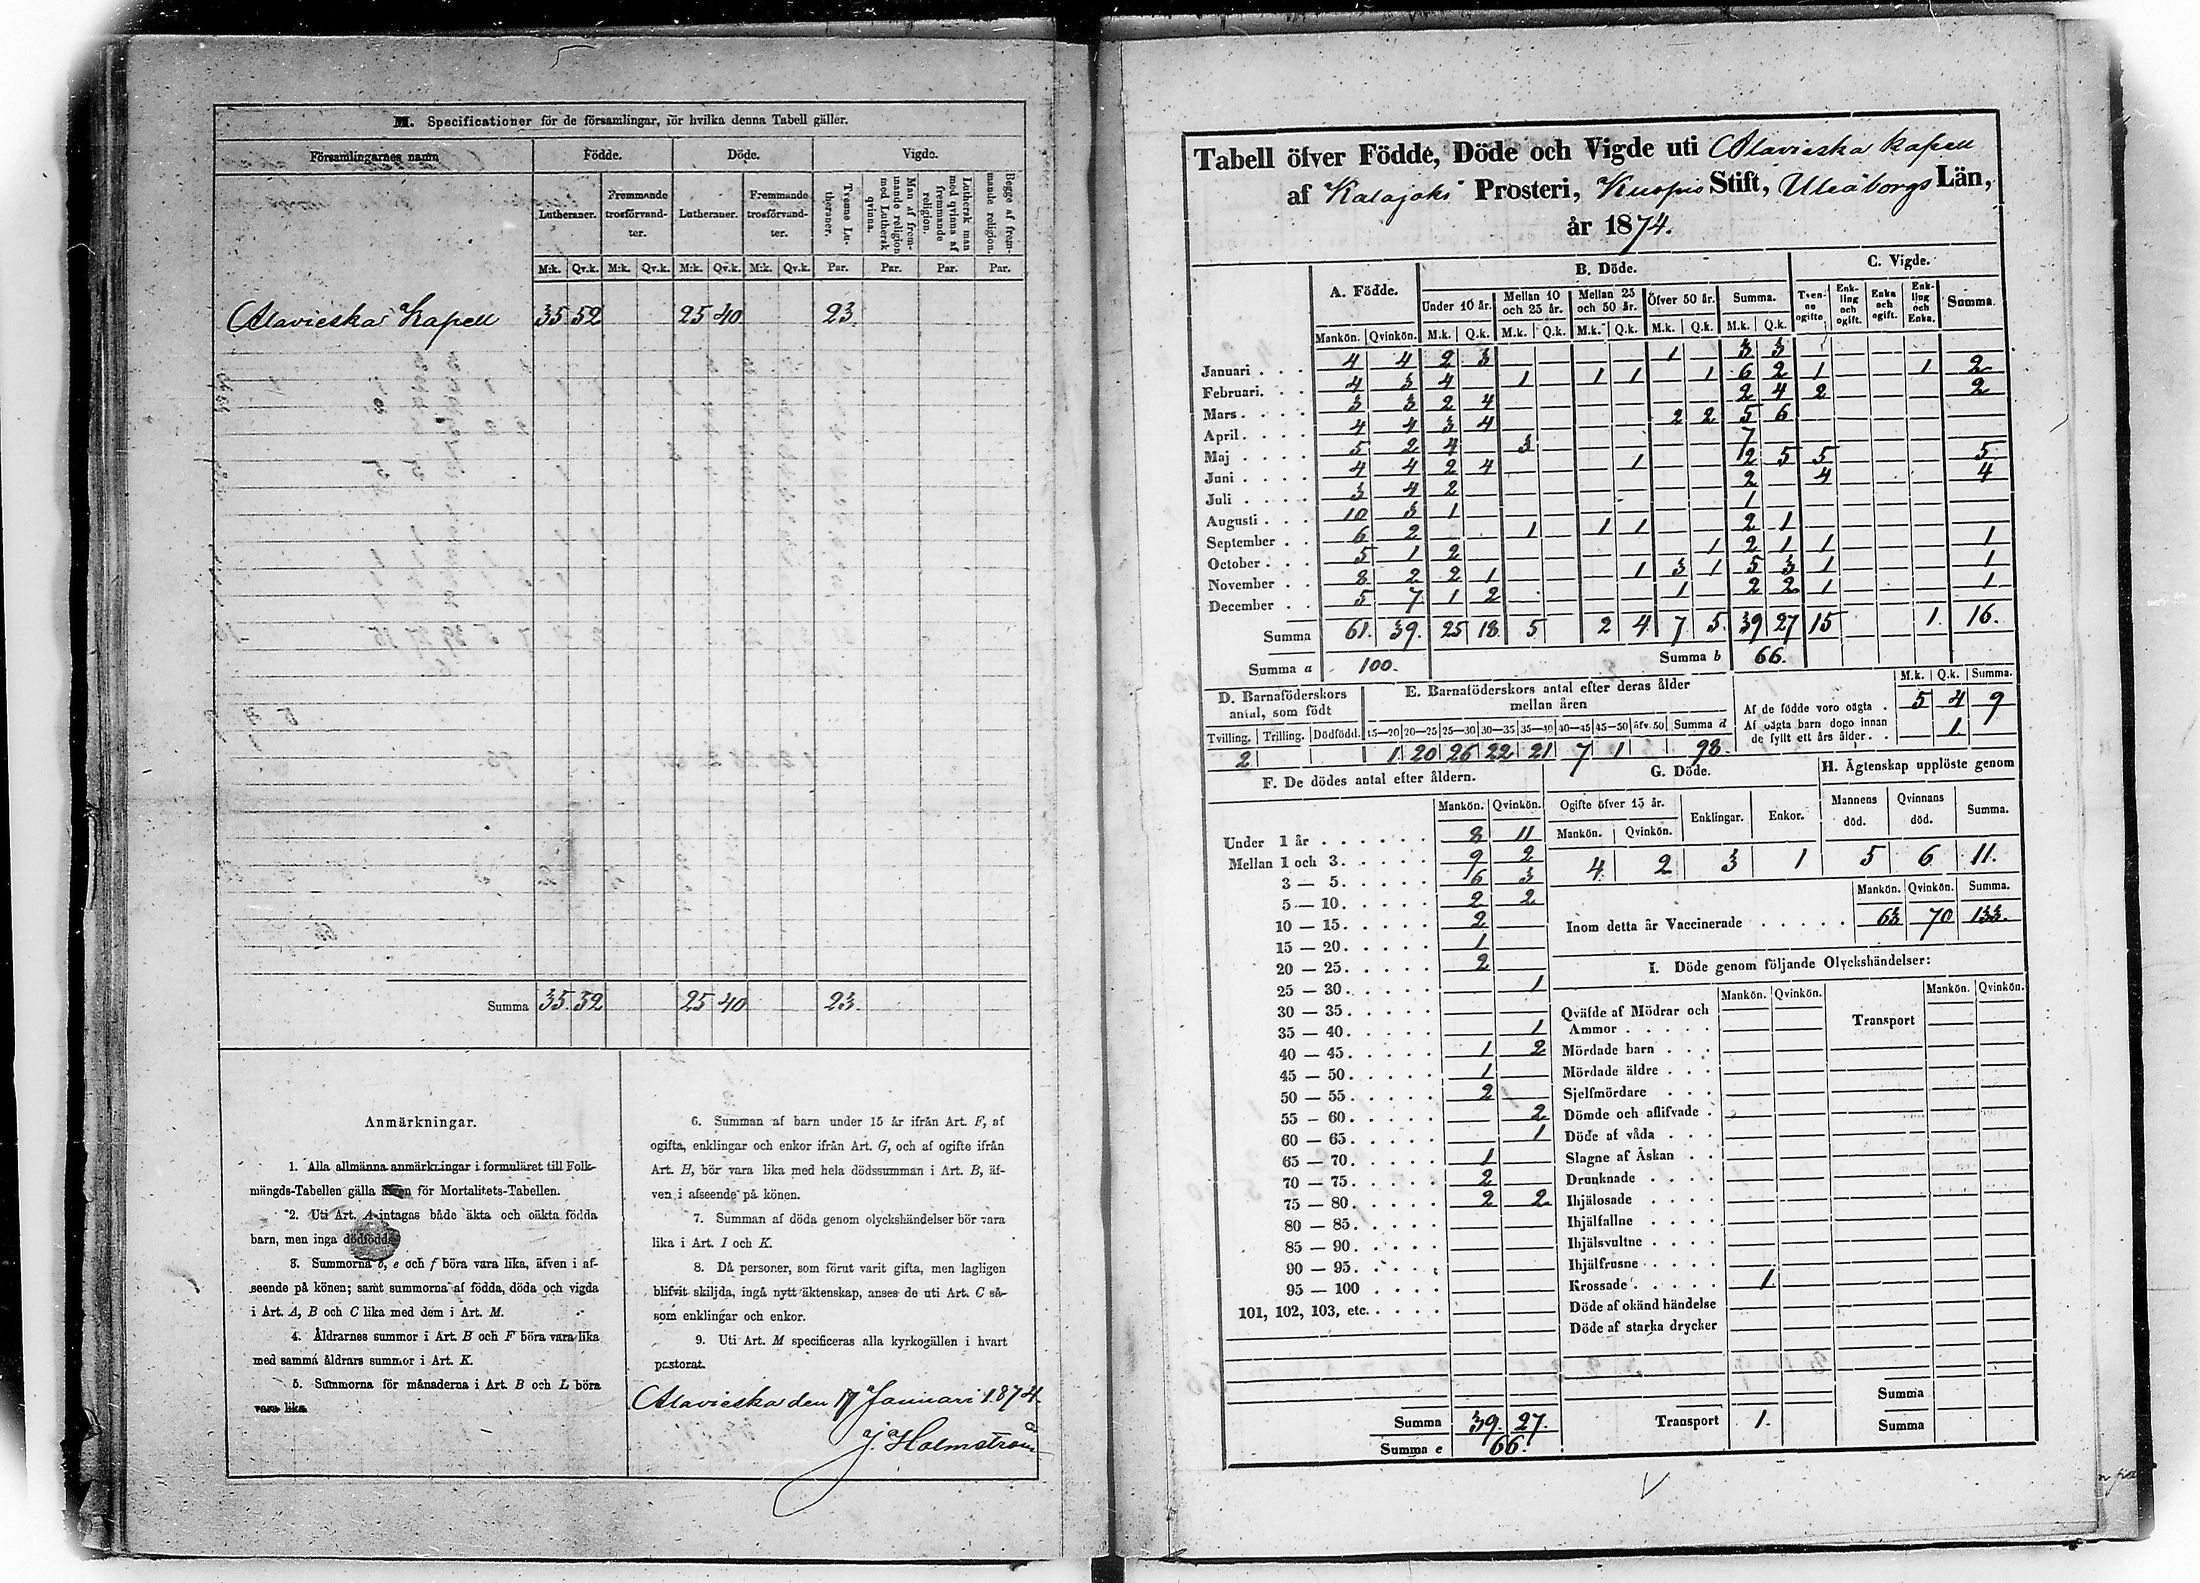 M. Specificationer för de församlingar, för hvilka denna Tabell gäller.
Församlingarnes namn
Födde.
Döde.
Vigde.
Lutheraner.
Fremmande trosförvandter.
Lutheraner.
Fremmande trosförvandter.
Tvenne Lutheraner.
Man af fremmande religion med Luthersk qvinna.
Luthersk man med qvinna af fremmande religion.
Begge af fremmande religion.
M:k. Qv.k. M:k. Qv.k. M:k. Qv.k. M:k. Qv.k. Par. Par. Par. Par.
Alavieska Kapell 35 52 25 40 23.
Summa 35. 52 25 40 23.
Anmärkningar.
1. Alla allmänna anmärkningar i formuläret till Folk-
mängds-Tabellen gälla även för Mortalitets-Tabellen.
2. Uti Art. A intagas både äkta och oäkta födda
barn, men inga dödfödda.
3. Summorna b, e och f böra vara lika, äfven i af-
seende på könen; samt summorna af födda, döda och vigda
i Art. A, B och C lika med dem i Art. M.
4. Åldrarnes summor i Art. B och F böra vara lika
med samma åldrars summor i Art. K.
5. Summorna för månaderna i Art. B och L böra
vara lika.
6. Summan af barn under 15 år ifrån Art. F, af
ogifta, enklingar och enkor ifrån Art. G, och af ogifte ifrån
Art. H, bör vara lika med hela dödssumman i Art. B, äf-
ven i afseende på könen.
7. Summan af döda genom olyckshändelser bör vara
lika i Art. I och K.
8. Då personer, som förut varit gifta, men lagligen
blifvit skiljda, ingå nytt äktenskap, anses de uti Art. C så-
som enklingar och enkor.
9. Uti Art. M specificeras alla kyrkogällen i hvart
pastorat.
Alavieska den 17 Januari 1874.
J. Holmström
Tabell öfver Födde, Döde och Vigde uti Alavieska kapell
af Kalajoki Prosteri, Kuopio Stift, Uleåborgs Län,
år 1874.
A. Födde.
B. Döde.
C. Vigde.
Under 10 år. Mellan 10 och 25 år. Mellan 25 och 50 år. Öfver 50 år. Summa.
Tvenne ogifte Enkling och ogift. Enka och ogift. Enkling och Enka. Summa.
Mankön. Qvinkön. M.k. Q.k. M.k. Q.k. M.k. Q.k. M.k. Q.k. M.k. Q.k.
Januari . . . 4 4 2 3 1 3 3
Februari. . . 4 3 4 1 1 1 1 6 2 1 1 2
Mars . . . . 3 3 2 4 2 4 2 2
April . . . . 4 4 3 4 2 2 5 6
Maj . . . . 5 2 4 3 7
Juni . . . . 4 4 2 4 1 2 5 5 5
Juli . . . . 3 4 2 2 4 4
Augusti . . . 10 3 1 1
September . . 6 2 1 1 1 2 1
October . . . 5 1 2 1 2 1 1 1
November . . 8 2 2 1 1 3 1 5 3 1 1
December . . 5 7 1 2 1 2 2 1 1
Summa 61. 39. 25 18 5 2 4 7 5 39 27 15 1. 16.
Summa a 100. Summa b 66.
D. Barnaföderskors antal, som födt
Tvilling. Trilling. Dödfödd.
2
E. Barnaföderskors antal efter deras ålder mellan åren
15—20 20—25 25—30 30—35 35—40 40—45 45—50 öfv. 50 Summa d
1 20 26 22 21 7 1 98.
M.k. Q.k. Summa.
Af de födde voro oägta . 5 4 9
Af oägta barn dogo innan
de fyllt ett års ålder . . 1
F. De dödes antal efter åldern.
Mankön. Qvinkön.
Under 1 år . . . . . . 8 11
Mellan 1 och 3. . . . . 9 2
3 — 5. . . . . 6 3
5 — 10. . . . . 2 2
10 — 15. . . . . 2
15 — 20. . . . . 1
20 — 25. . . . . 2
25 — 30. . . . . 1
30 — 35. . . . .
35 — 40. . . . . 1
40 — 45. . . . . 1 2
45 — 50. . . . . 1
50 — 55. . . . . 2
55 — 60. . . . . 2
60 — 65. . . . . 1
65 — 70. . . . . 1
70 — 75. . . . . 2
75 — 80. . . . . 2 2
80 — 85. . . . .
85 — 90. . . . .
90 — 95. . . . .
95 — 100 . . . .
101, 102, 103, etc. . . . .
Summa 39. 27.
Summa e 66.
G. Döde.
Ogifte öfver 15 år. Enklingar. Enkor.
Mankön. Qvinkön.
4 2 3 1
H. Ägtenskap upplöste genom
Mannens död. Qvinnans död. Summa.
5 6 11.
Mankön. Qvinkön. Summa.
Inom detta år Vaccinerade . . . . . 63 70 133.
I. Döde genom följande Olyckshändelser:
Mankön. Qvinkön. Mankön. Qvinkön.
Qväfde af Mödrar och
Ammor . . . . .
Transport
Mördade barn . . .
Mördade äldre . . .
Sjelfmördare . . .
Dömde och aflifvade .
Döde af våda . . .
Slagne af Åskan . .
Drunknade . . . .
Ihjälosade . . . .
Ihjälfallne . . . .
Ihjälsvultne . . . .
Ihjälfrusne . . . .
Krossade . . . . . 1
Döde af okänd händelse
Döde af starka drycker
Summa
Transport 1. Summa